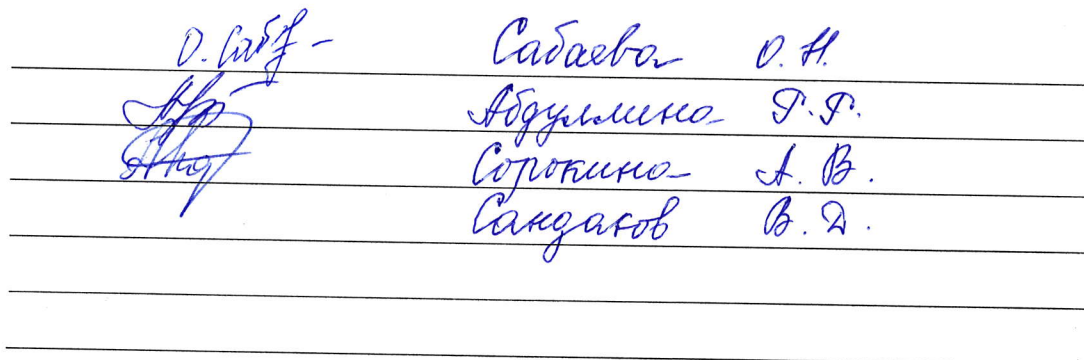 О. Саб Сабаева О. Н.
Абдуллина Г. Г.
Сорокина А. В.
Сандаков В. Д.